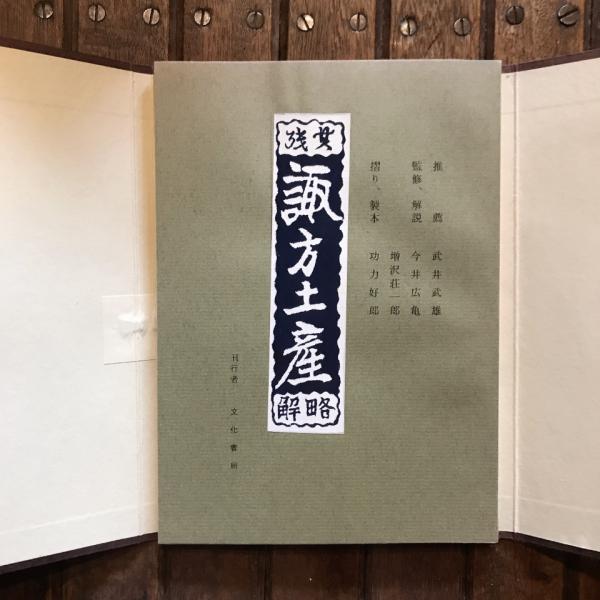 推薦 武井武雄
監修、解説 今井広亀
増沢荘一郎
摺り、製本 功力好郎
其残
諏方土産
略解
刊行者 文化書局